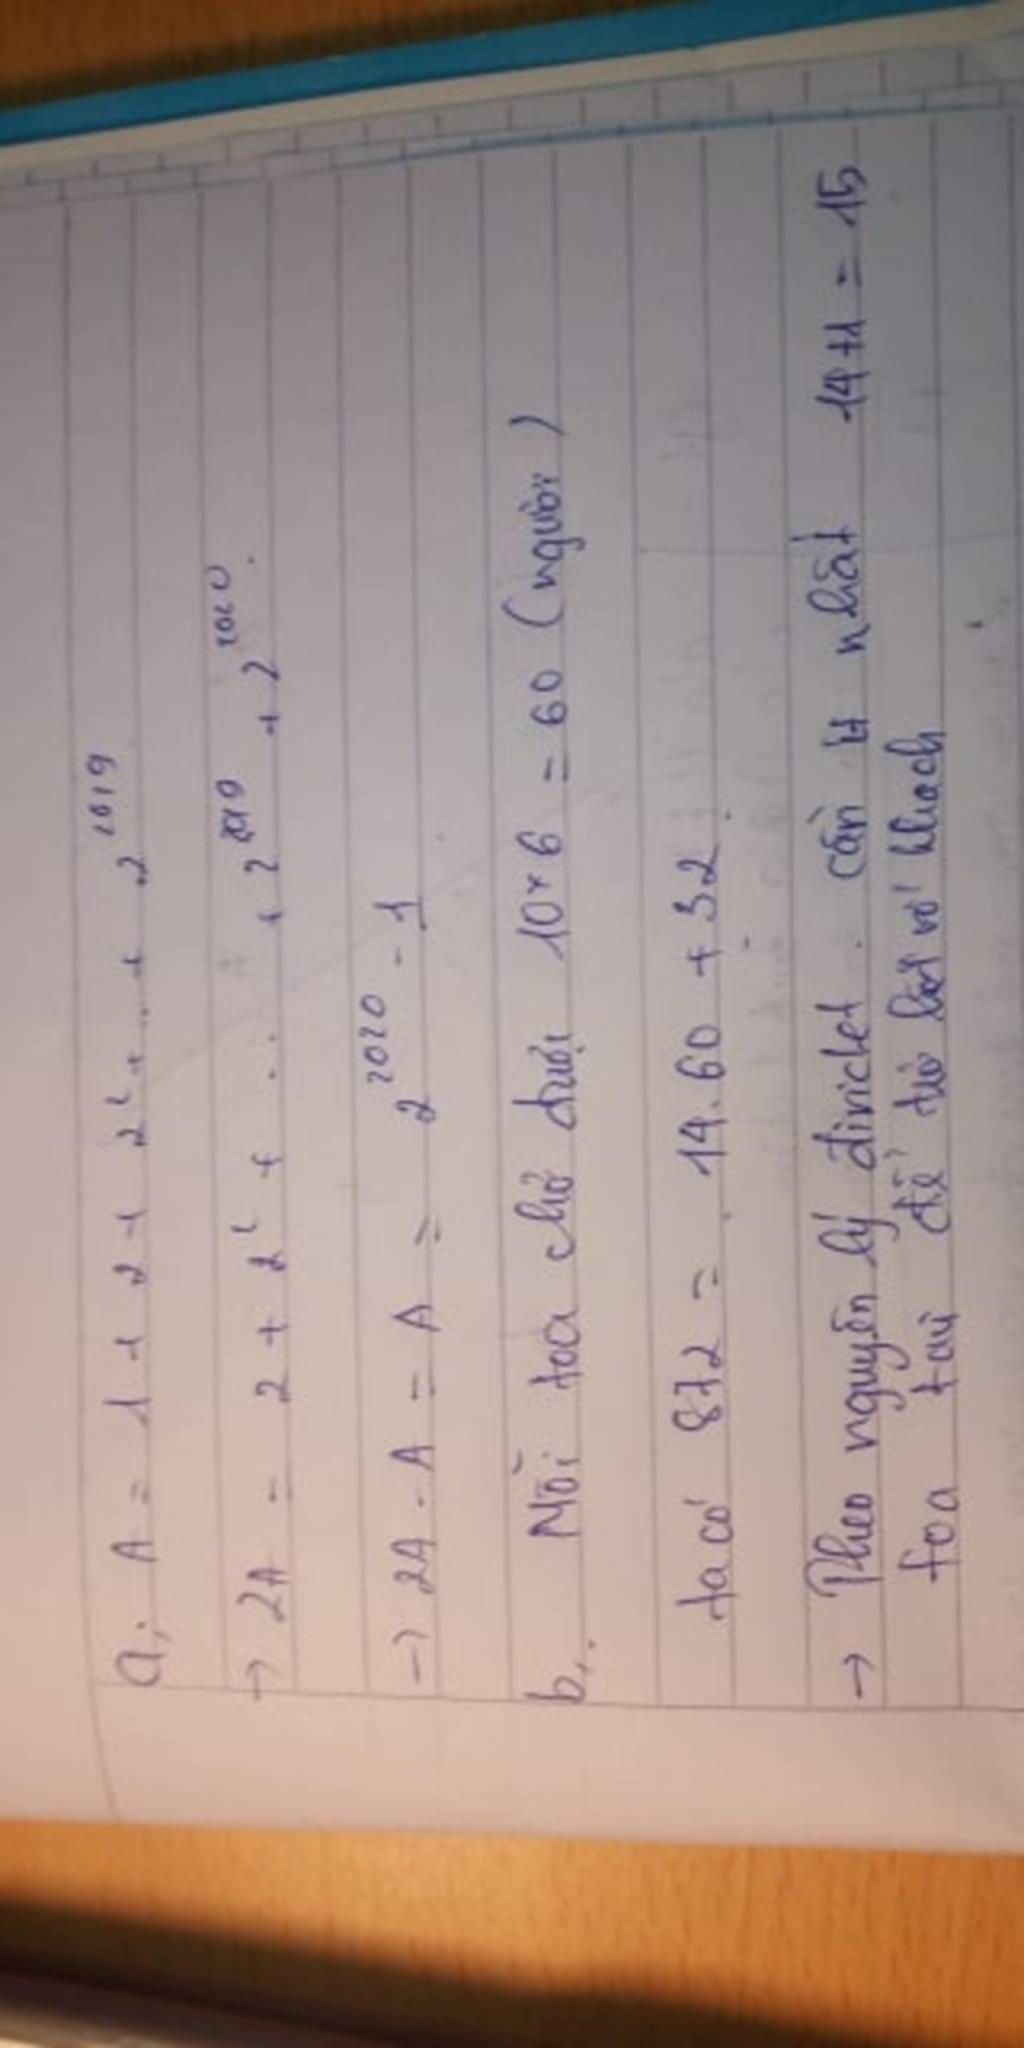 a, A = 1 + 2 + 2² + ... + 2²⁰¹⁹
→ 2A = 2 + 2² + ... + 2²⁰¹⁹ + 2²⁰²⁰.
→ 2A - A = A = 2²⁰²⁰ - 1
b, Mỗi toa chở được 10 × 6 = 60 (người)
ta có 872 = 14.60 + 32
→ Theo nguyên lý diriclet cần ít nhất 14 + 1 = 15
toa tàu để chở số khách